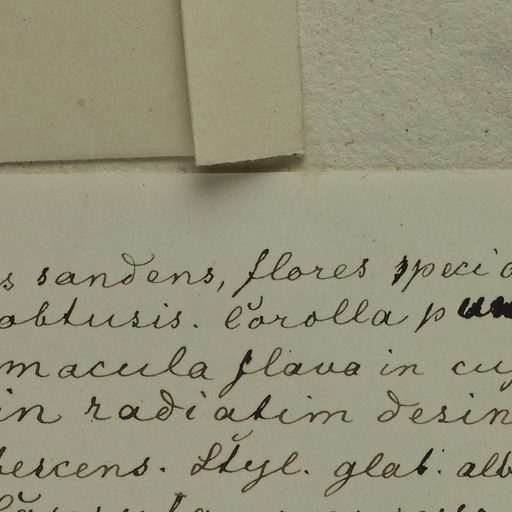 s sandens, flores speci
obtusis. Corolla p
macula flava in cu
in radiatim desin
bescens. Styl. glab. alb